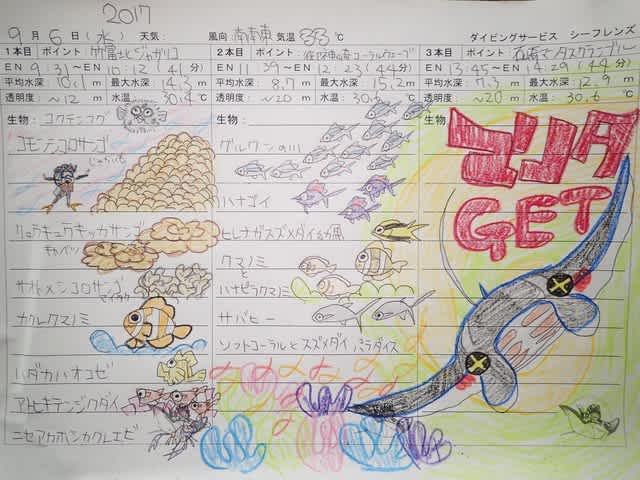 2017
9月6日(水) 天気: 風向 南南東 気温 33℃ ダイビングサービス シーフレンズ
1本目 ポイント 竹富北ジャガリコ
EN 9:31~EN 10:12 (41分)
平均水深 10.1m 最大水深 14.3m
透明度 ~12m 水温: 30.4℃
生物: コクテンフグ
コモンシコロサンゴ
じゃがいも
リュウキュウキッカサンゴ
キャベツ
サオトメシコロサンゴ
マイタケ
カクレクマノミ
ハダカハオコゼ
アトヒキテンジクダイ
ニセアカホシカクレエビ
2本目 ポイント
EN 11:39~EN 12:23 (44分)
平均水深 8.7m 最大水深 15.2m
透明度 ~20m 水温: 30.6℃
生物:
グルクンの川
ハナゴイ
ヒレナガスズメダイ幼魚
クマノミ
と
ハナビラクマノミ
サバヒー
ソフトコーラルとスズメダイ パラダイス
3本目 ポイント 石崎でスクランブル
EN 13:45~EN 14:29 (44分)
平均水深 7.3m 最大水深 12.9m
透明度 ~20m 水温: 30.6℃
生物
マンタ
GET